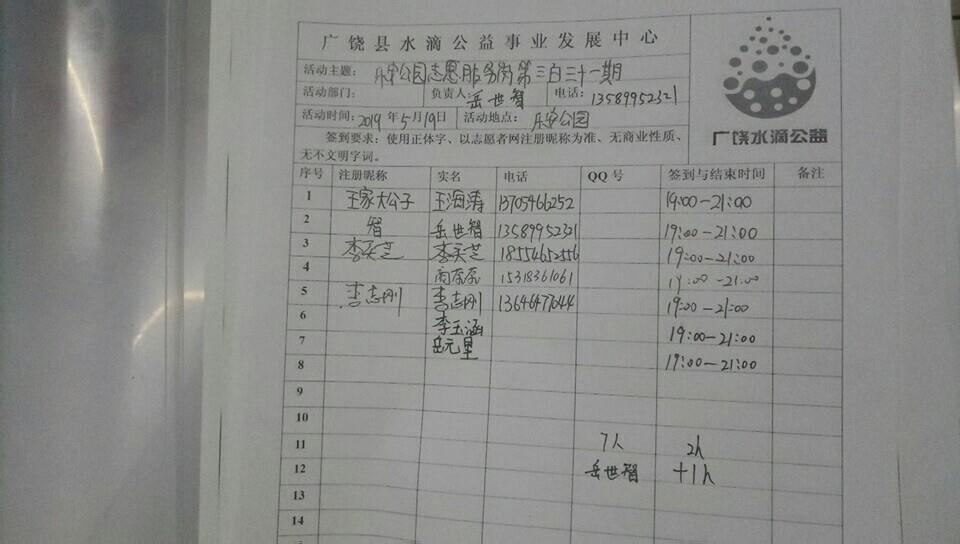 广饶县水滴公益事业发展中心
活动主题: 乐安公园志愿服务岗第三百三十一期
活动部门: 负责人: 岳世智 电话: 13589952321
活动时间: 2019年5月19日 活动地点: 乐安公园
签到要求: 使用正体字、以志愿者网注册昵称为准、无商业性质、
无不文明字词。
广饶水滴公益
序号 注册昵称 实名 电话 QQ号 签到与结束时间 备注
1 王家大公子 王海涛 13705466252 19:00-21:00
2 智 岳世智 13589952321 19:00-21:00
3 李英芝 李英芝 18554652556 19:00-21:00
4 15318361061 19:00-21:00
5 李志刚 李志刚 13646477044 19:00-21:00
6 李玉涵
7 岳元星 19:00-21:00
8 19:00-21:00
9
10
11 7人 2h
12 岳世智 +1h
13
14